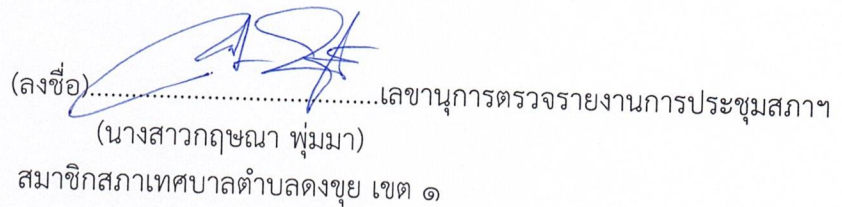 (ลงชื่อ)........................................เลขานุการตรวจรายงานการประชุมสภาฯ
(นางสาวกฤษณา พุ่มมา)
สมาชิกสภาเทศบาลตำบลดงขุย เขต ๑